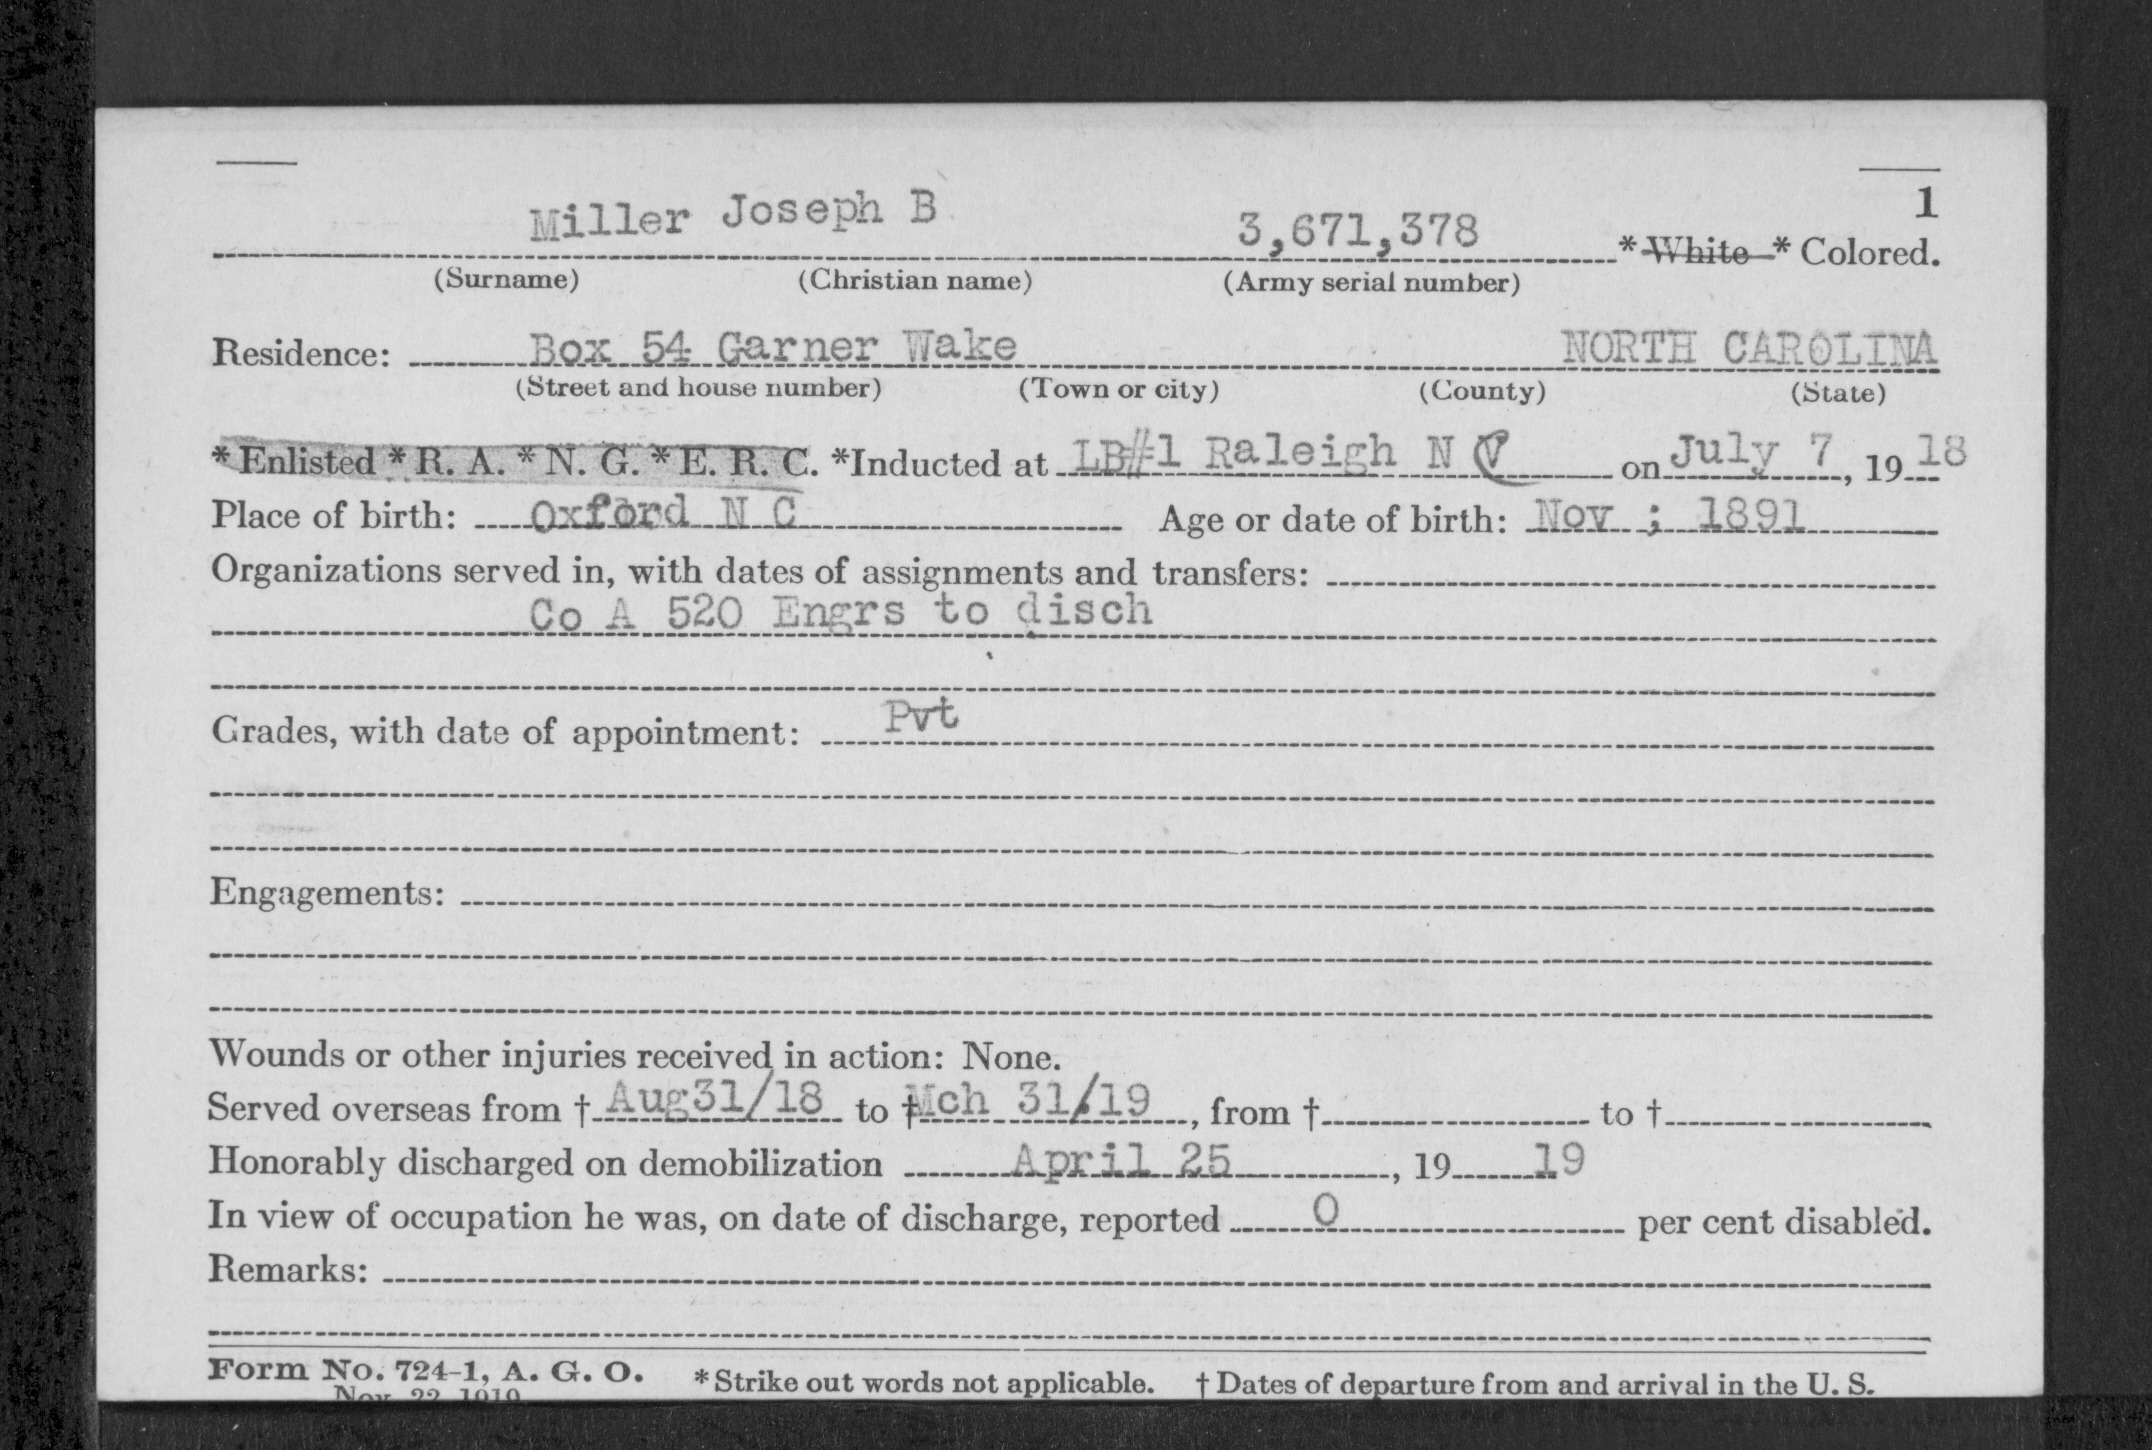 1
Miller Joseph B 3,671,378 * White * Colored.
(Surname) (Christian name) (Army serial number)
Residence: Box 54 Garner Wake NORTH CAROLINA
(Street and house number) (Town or city) (County) (State)
* Enlisted * R. A. * N. G. * E. R. C. *Inducted at LB#1 Raleigh N C on July 7, 19 18
Place of birth: Oxford N C Age or date of birth: Nov ; 1891
Organizations served in, with dates of assignments and transfers:
Co A 520 Engrs to disch
Grades, with date of appointment: Pvt
Engagements:
Wounds or other injuries received in action: None.
Served overseas from † Aug31/18 to † Mch 31/19, from † to †
Honorably discharged on demobilization April 25, 19 19
In view of occupation he was, on date of discharge, reported 0 per cent disabled.
Remarks:
Form No. 724-1, A. G. O. * Strike out words not applicable. † Dates of departure from and arrival in the U. S.
Nov. 22, 1919